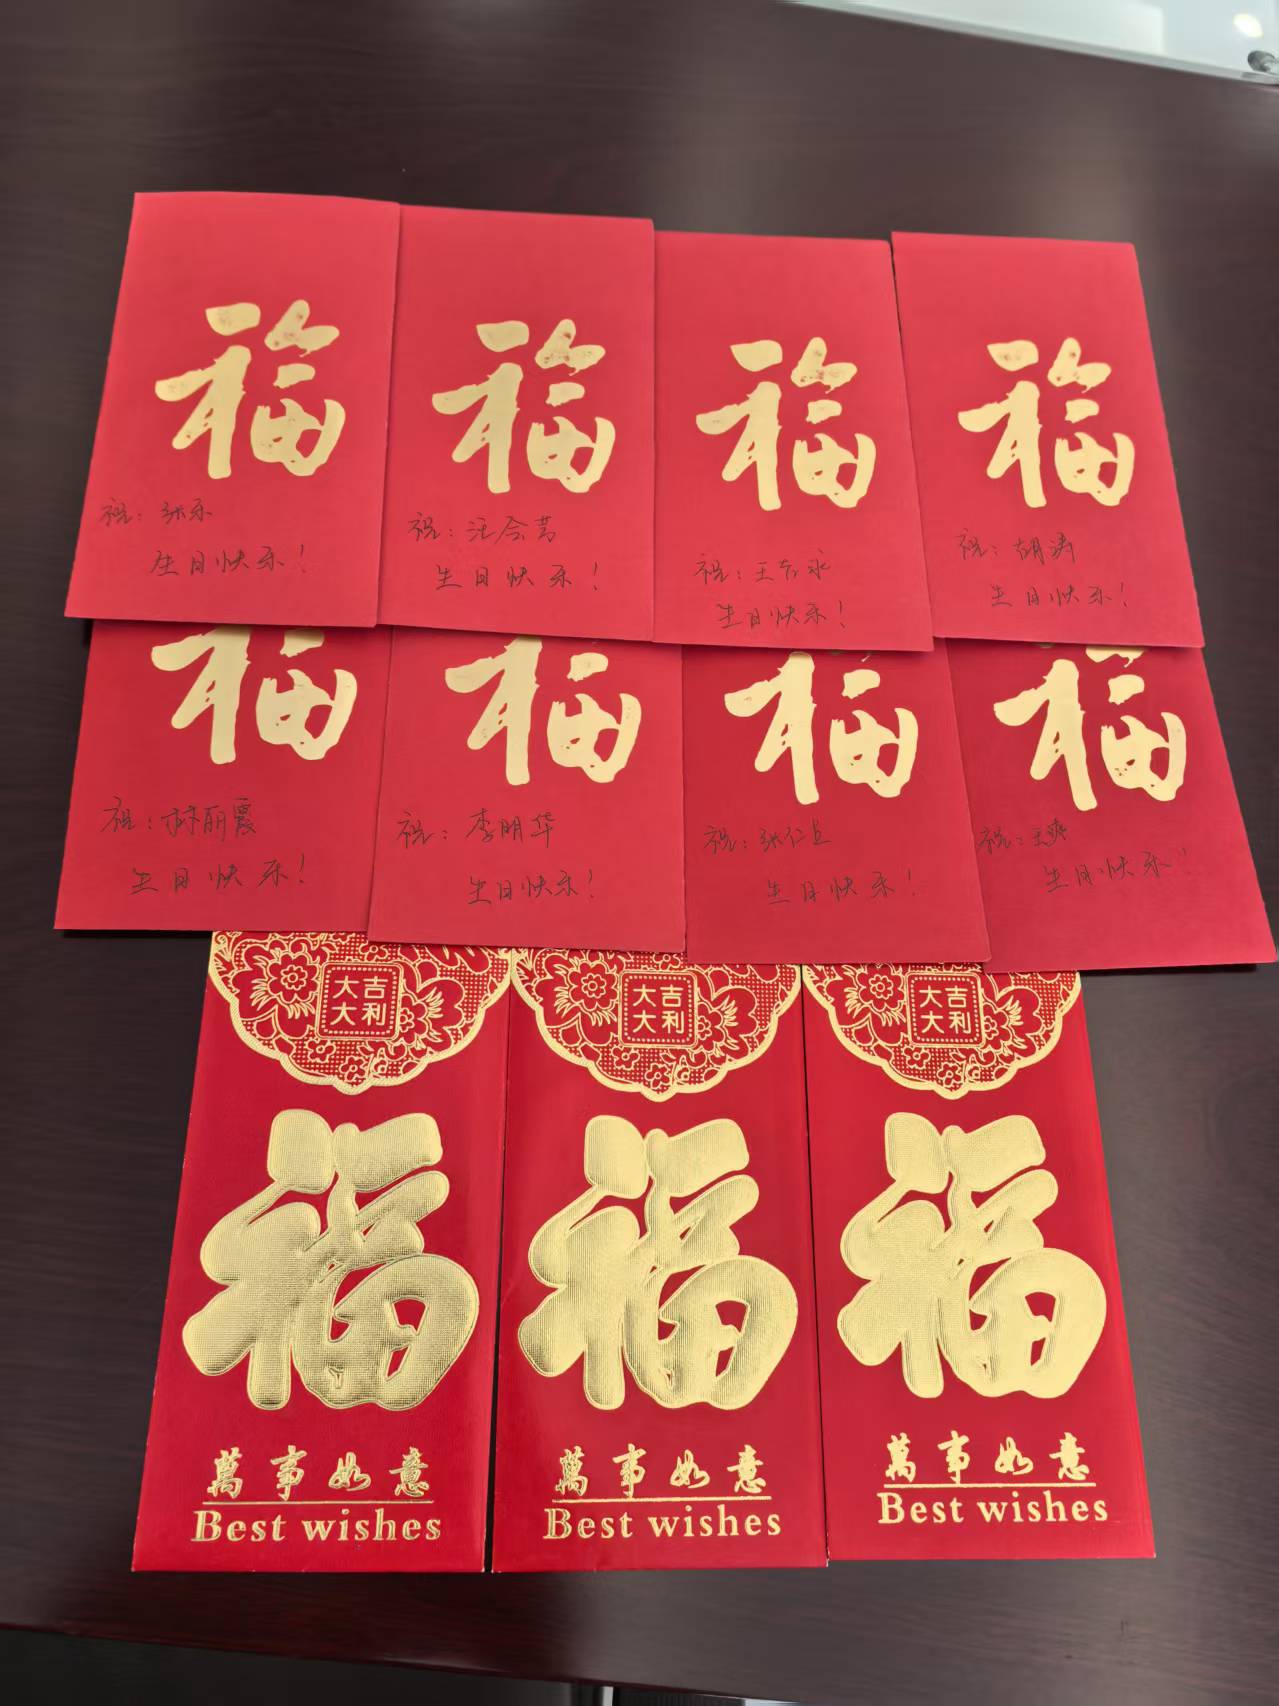 福
祝：张乐
生日快乐！
福
祝：汪会芳
生日快乐！
福
祝：王友永
生日快乐！
福
祝：胡涛
生日快乐！
福
祝：林丽霞
生日快乐！
福
祝：李明华
生日快乐！
福
祝：张仁
生日快乐！
福
祝：王爽
生日快乐！
大吉
大利
福
萬事如意
Best wishes
大吉
大利
福
萬事如意
Best wishes
大吉
大利
福
萬事如意
Best wishes